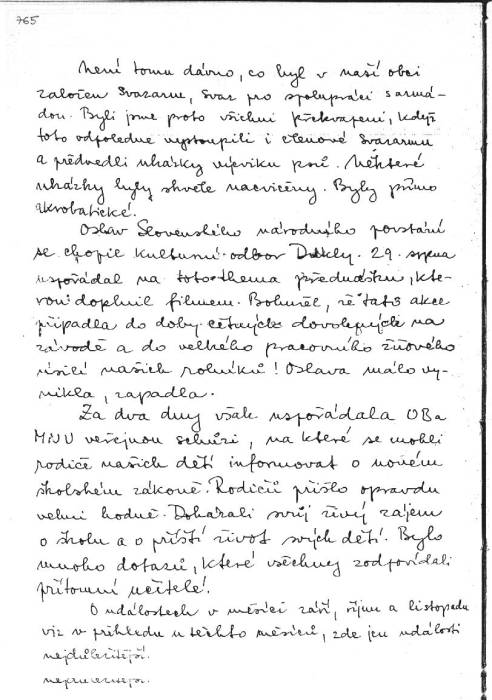 765
Není tomu dávno, co byl v naší obci
založen Svazarm, svaz pro spolupráci s armá-
dou. Byli jsme proto všichni překvapeni, když
toto odpoledne vystoupili i členové Svazarmu
a předvedli ukázky výcviku psů. Některé
ukázky byly skvěle nacvičeny. Byly přímo
akrobatické.
Oslav Slovenského národního povstání
se chopil kulturní odbor Dukly. 29. srpna
uspořádal na toto thema přednášku, kte-
rou doplnil filmem. Bohužel, že tato akce
připadla do doby četných dovolených na
závodě a do velkého pracovního žňového
úsilí našich rolníků! Oslava málo vy-
nikla, zapadla.
Za dva dny však uspořádala OB a
MNV veřejnou schůzi, na které se mohli
rodiče našich dětí informovat o novém
školském zákoně. Rodičů přišlo opravdu
velmi hodně. Dokázali svůj živý zájem
o školu a o příští život svých dětí. Bylo
mnoho dotazů, které všechny zodpovídali
přítomní učitelé.
O událostech v měsíci září, říjnu a listopadu
viz v přehledu u těchto měsíců, zde jen události
nejdůležitější.